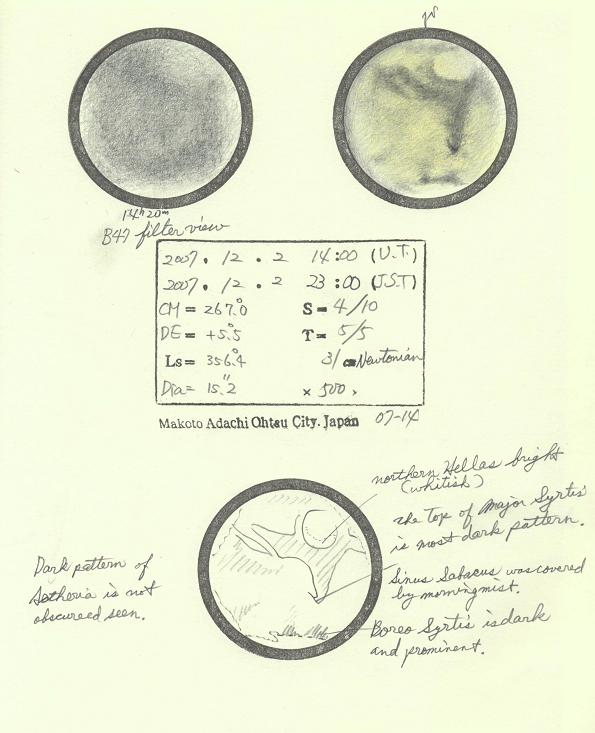 14h 20m
B47 filter view
2007. 12. 2 14:00 (U.T.)
2007. 12. 2 23:00 (J.S.T)
CM = 267.°0 S = 4/10
DE = +5.°5 T = 5/5
Ls = 356.°4 31 cm Newtonian
Dia = 15."2 × 500,
Makoto Adachi Ohtsu City. Japan 07-14
northern Hellas bright
(whitish)
the Top of Major Syrtis
is most dark pattern.
Dark pattern of
Aetheria is not
obscureed seen.
Sinus Sabacus was covered
by morning mist.
Boreo Syrtis is dark
and prominent.